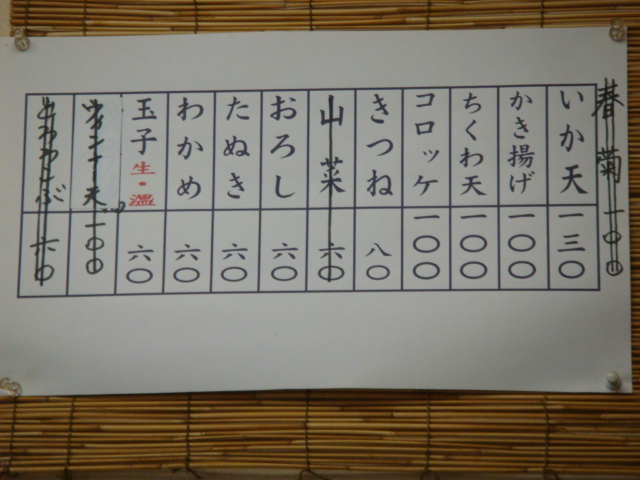 春菊 一〇〇
いか天 一三〇
かき揚げ 一〇〇
ちくわ天 一〇〇
コロッケ 一〇〇
きつね 八〇
山菜 六〇
おろし 六〇
たぬき 六〇
わかめ 六〇
玉子 生・温 六〇
ウインナー天 一〇〇
六〇